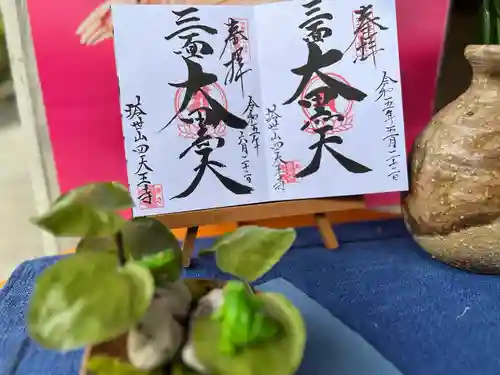 令和五年五月
奉拝
三面大黒天
塔世山四天王寺
令和五年六月
奉拝
三面大黒天
塔世山四天王寺